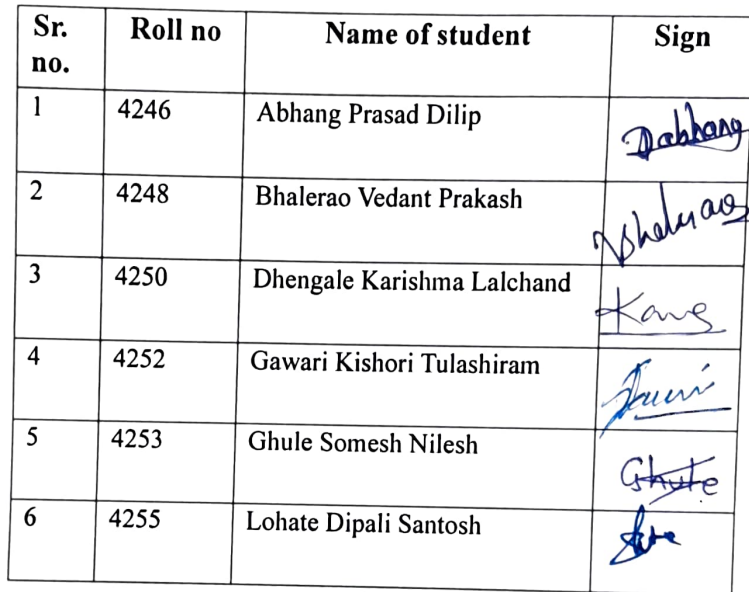 Sr. no. Roll no Name of student Sign
1 4246 Abhang Prasad Dilip Dabhang
2 4248 Bhalerao Vedant Prakash
3 4250 Dhengale Karishma Lalchand
4 4252 Gawari Kishori Tulashiram
5 4253 Ghule Somesh Nilesh Ghule
6 4255 Lohate Dipali Santosh